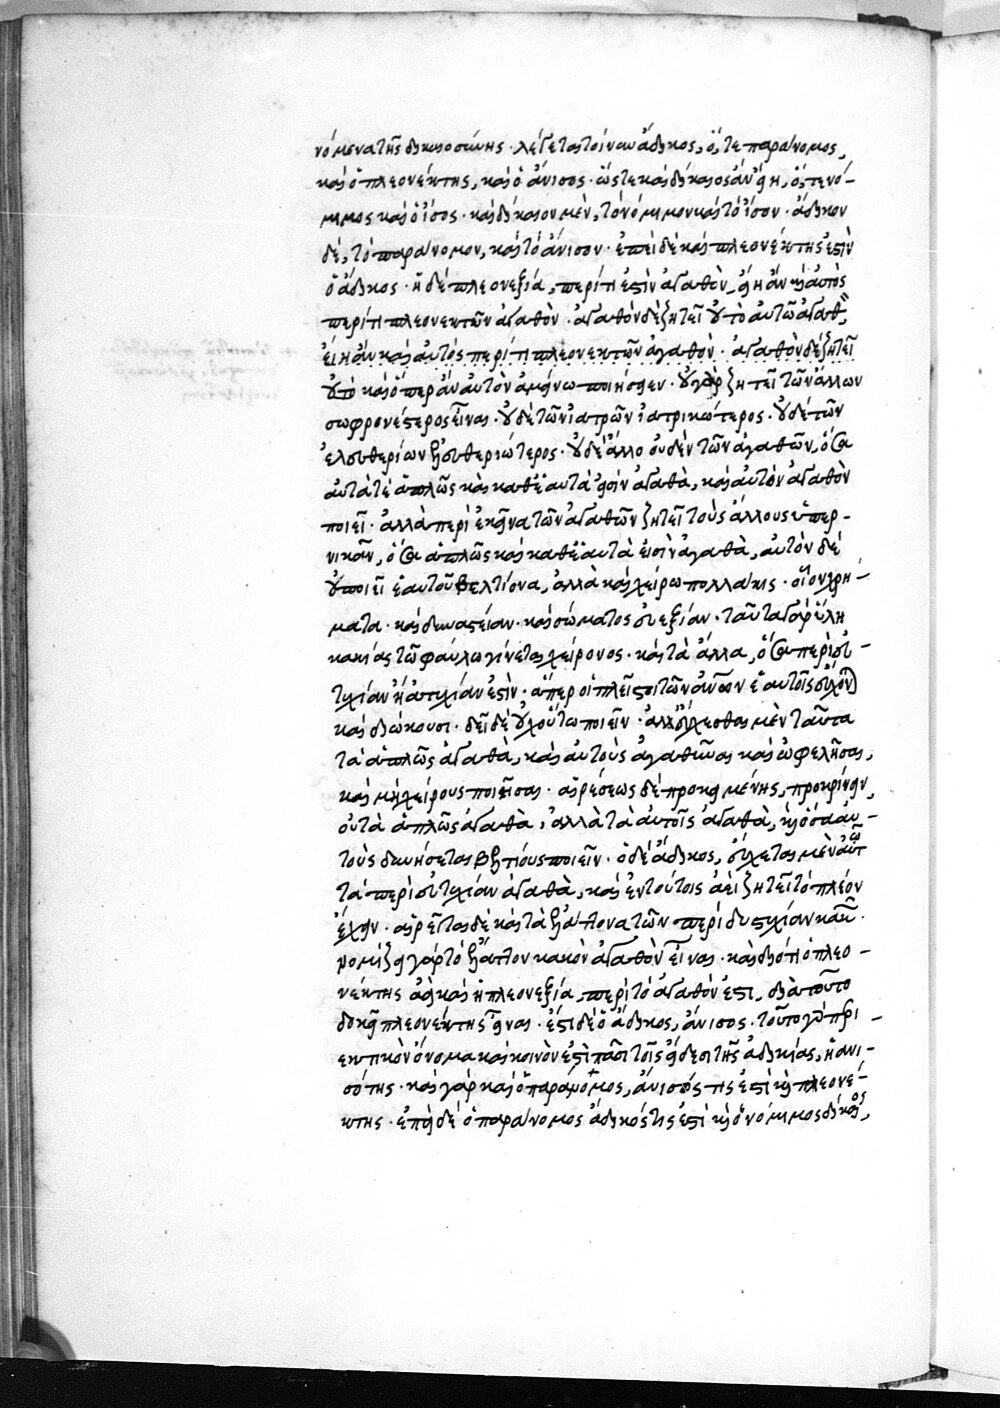 νόμενα τῆς δικαιοσύνης· λέγεται τοίνυν ἄδικος, ὅ, τε παράνομος,
καὶ ὁ πλεονέκτης, καὶ ὁ ἄνισος· ὥστε καὶ δίκαιος ἂν εἴη, ὅ, τε νό-
μιμος καὶ ὁ ἴσος· καὶ δίκαιον μὲν, τὸ νόμιμον καὶ τὸ ἴσον· ἄδικον
δὲ, τὸ παράνομον, καὶ τὸ ἄνισον· ἐπεὶ δὲ καὶ πλεονέκτης ἐστὶν
ὁ ἄδικος· ἡ δὲ πλεονεξία, περί τι ἐστὶν ἀγαθὸν, εἴη ἂν καὶ αὐτὸς
περί τι πλεονεκτῶν ἀγαθὸν· ἀγαθὸν δὲ ζητεῖ οὐ τὸ αὐτῶ ἀγαθὸν,
εἴη ἂν καὶ αὐτὸς περί τι πλεονεκτῶν ἀγαθὸν· ἀγαθὸν δὲ ζητεῖ
οὐ τὸ καὶ ὅπερ ἂν αὐτὸν ἀμείνω ποιήσειεν· οὐ γὰρ ζητεῖ τῶν ἄλλων
σωφρονέστερος εἶναι· οὐδὲ τῶν ἰατρῶν ἰατρικώτερος· οὐδὲ τῶν
ἐλευθερίων ἐλευθεριώτερος· οὐδὲ ἄλλο οὐδὲν τῶν ἀγαθῶν, ὅσα
αὐτά τε ἁπλῶς καὶ καθ' ἑαυτά εἰσιν ἀγαθὰ, καὶ αὐτὸν ἀγαθὸν
ποιεῖ· ἀλλὰ περὶ ἐκεῖνα τῶν ἀγαθῶν ζητεῖ τοὺς ἄλλους ὑπερ-
νικᾶν, ὅσα ἁπλῶς καὶ καθ' ἑαυτὰ εἰσὶν ἀγαθὰ, αὐτὸν δὲ
οὐ ποιεῖ ἑαυτοῦ βελτίονα, ἀλλὰ καὶ χείρω πολλάκις· οἷον χρή-
ματα· καὶ δυναστείαν· καὶ σώματος εὐεξίαν· ταῦτα γὰρ ὕλη
κακίας τῶ φαύλω γίνεται χείρονος· καὶ τὰ ἄλλα, ὅσα περὶ εὐ-
τυχίαν ἢ ἀτυχίαν ἐστὶν· ἅπερ οἱ πλεῖστοι τῶν ἀνθρώπων ἑαυτοῖς εὔχονται
καὶ διώκουσι· δεῖ δὲ οὐχ οὕτω ποιεῖν· ἀλλ' εὔχεσθαι μὲν ταῦτα
τὰ ἁπλῶς ἀγαθὰ, καὶ αὐτοὺς ἀγαθῦναι καὶ ὠφελῆσαι,
καὶ μὴ χείρους ποιεῖσαι· αἱρέσεως δὲ προκειμένης, προκρίνειν,
οὐ τὰ ἁπλῶς ἀγαθὰ, ἀλλὰ τὰ αὐτοῖς ἀγαθὰ, καὶ ὅσα αὐ-
τοὺς δυνήσεται βελτίους ποιεῖν· ὁ δὲ ἄδικος, εὔχεται μὲν αὑτῶ
τὰ περὶ εὐτυχίαν ἀγαθὰ, καὶ ἐν τούτοις ἀεὶ ζητεῖ τὸ πλέον
ἔχειν· αἱρεῖται δὲ καὶ τὰ ἐλάττονα τῶν περὶ δυστυχίαν κακῶν·
νομίζει γὰρ τὸ ἔλαττον κακὸν ἀγαθὸν εἶναι· καὶ διότι ὁ πλεο-
νέκτης ἀεὶ καὶ ἡ πλεονεξία, περὶ τὸ ἀγαθὸν ἐστι, διὰ τοῦτο
δοκεῖ πλεονέκτης εἶναι· ἔστι δὲ ὁ ἄδικος, ἄνισος· τοῦτο γὰρ περι-
εκτικὸν ὄνομα καὶ κοινὸν ἐστὶ πᾶσι τοῖς εἴδεσι τῆς ἀδικίας, ἡ ἀνι-
σότης· καὶ γὰρ καὶ ὁ παράνομος, ἄνισός τις ἐστὶ καὶ πλεονέ-
κτης· ἐπεὶ δὲ ὁ παράνομος ἄδικός τις ἐστὶ καὶ ὁ νόμιμος δίκαιος,